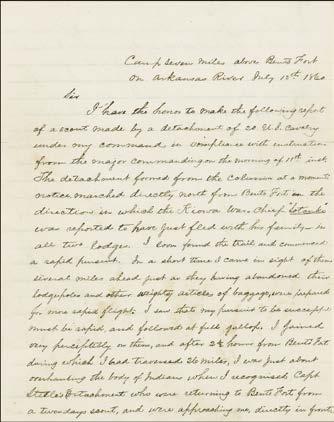 Camp seven miles above Bents Fort
On Arkansas River July 12th 1860
Sir
I have the honor to make the following report
of a scout made by a detachment of 20 U.S. Cavalry
under my command in compliance with instruction
from the major commanding on the morning of 11th inst.
The detachment formed from the Column at a moments
notice marched directly north from Bents Fort in the
direction in which the Kiowa War Chief
was reported to have just fled with his family in
all two lodges. I soon found the trail and commenced
a rapid pursuit. In a short time I came in sight of them
several miles ahead just as they having abandoned their
lodgepoles and other weighty articles of baggage, were prepared
for more rapid flight. I saw that my pursuit to be successful
must be rapid, and followed at full gallop. I gained
very perceptibly on them, and after 2½ hours from Bents Fort
during which I had traversed 26 miles, I was just about
overhauling the body of Indians when I recognised Capt
Steeles Detachment who were returning to Bents Fort from
a two days scout, and were approaching me, directly in front